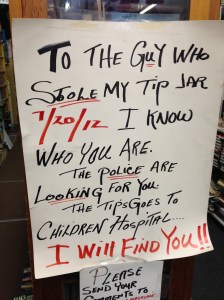 TO THE GUY WHO
STOLE MY TIP JAR
7/20/12 I KNOW
WHO YOU ARE.
THE POLICE ARE
LOOKING FOR YOU.
THE TIPS GOES TO
CHILDREN HOSPITAL....
I WILL FIND YOU!!
PLEASE
SEND YOUR
COMMENTS TO